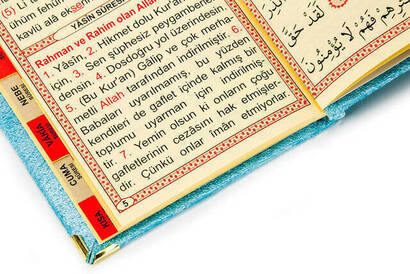 kavlü alâ ekse
YÂSİN SÛRESİ
Rahman ve Rahim olan Allah
1. Yâsin. 2. Hikmet dolu Kur'an
3. Sen şüphesiz peygamberler
densin. 4. Dosdoğru yol üzerindesin.
5. (Bu Kur'an) Gâlip ve çok merha
metli Allah tarafından indirilmiştir. 6.
Babaları uyarılmamış, bu yüzden
kendileri de gaflet içinde kalmış bir
toplumu uyarman için indirilmiş-
tir. 7. Yemin olsun ki onların çoğu
gafletlerinin cezasını hak etmiştir
dir. Çünkü onlar îmân etmiyorlar.
5
NEBE
SÛRESİ
VÂKIA
CUMA
SÛRESİ
KISA
فَهُمْ لَا يُؤْمِنُونَ